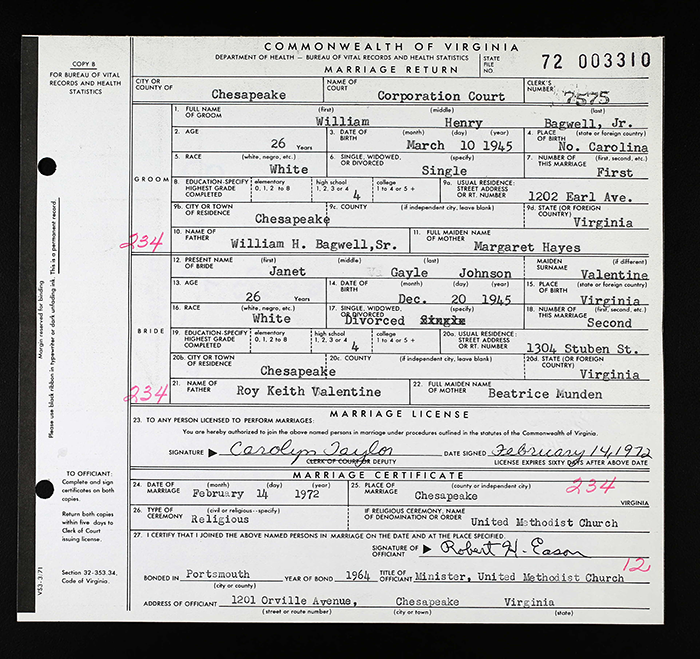 COMMONWEALTH OF VIRGINIA
DEPARTMENT OF HEALTH — BUREAU OF VITAL RECORDS AND HEALTH STATISTICS
MARRIAGE RETURN
STATE FILE NO. 72 003310
COPY B
FOR BUREAU OF VITAL RECORDS AND HEALTH STATISTICS
CITY OR COUNTY OF Chesapeake NAME OF COURT Corporation Court CLERK'S NUMBER 7575
GROOM
1. FULL NAME OF GROOM (first) William (middle) Henry (last) Bagwell, Jr.
2. AGE 26 Years 3. DATE OF BIRTH (month) (day) (year) March 10 1945 4. PLACE OF BIRTH (state or foreign country) No. Carolina
5. RACE (white, negro, etc.) White 6. SINGLE, WIDOWED, OR DIVORCED (specify) Single 7. NUMBER OF THIS MARRIAGE (first, second, etc.) First
8. EDUCATION-SPECIFY HIGHEST GRADE COMPLETED elementary 0, 1, 2 to 8 high school 1, 2, 3 or 4 4 college 1 to 4 or 5 + 9a. USUAL RESIDENCE: STREET ADDRESS OR RT. NUMBER 1202 Earl Ave.
9b. CITY OR TOWN OF RESIDENCE Chesapeake 9c. COUNTY (if independent city, leave blank) 9d. STATE (OR FOREIGN COUNTRY) Virginia
234 10. NAME OF FATHER William H. Bagwell,Sr. 11. FULL MAIDEN NAME OF MOTHER Margaret Hayes
BRIDE
12. PRESENT NAME OF BRIDE (first) Janet (middle) Gayle (last) Johnson MAIDEN SURNAME (if different) Valentine
13. AGE 26 Years 14. DATE OF BIRTH (month) (day) (year) Dec. 20 1945 15. PLACE OF BIRTH (state or foreign country) Virginia
16. RACE (white, negro, etc.) White 17. SINGLE, WIDOWED, OR DIVORCED (specify) Divorced Single 18. NUMBER OF THIS MARRIAGE (first, second, etc.) Second
19. EDUCATION-SPECIFY HIGHEST GRADE COMPLETED elementary 0, 1, 2 to 8 high school 1, 2, 3 or 4 4 college 1 to 4 or 5 + 20a. USUAL RESIDENCE: STREET ADDRESS OR RT. NUMBER 1304 Stuben St.
20b. CITY OR TOWN OF RESIDENCE Chesapeake 20c. COUNTY (if independent city, leave blank) 20d. STATE (OR FOREIGN COUNTRY) Virginia
234 21. NAME OF FATHER Roy Keith Valentine 22. FULL MAIDEN NAME OF MOTHER Beatrice Munden
MARRIAGE LICENSE
23. TO ANY PERSON LICENSED TO PERFORM MARRIAGES:
You are hereby authorized to join the above named persons in marriage under procedures outlined in the statutes of the Commonwealth of Virginia.
SIGNATURE Carolyn Taylor DATE SIGNED February 14, 1972
CLERK OF COURT OR DEPUTY LICENSE EXPIRES SIXTY DAYS AFTER ABOVE DATE
MARRIAGE CERTIFICATE
24. DATE OF MARRIAGE (month) (day) (year) February 14 1972 25. PLACE OF MARRIAGE (county or independent city) Chesapeake 234 VIRGINIA
26. TYPE OF CEREMONY (civil or religious—specify) Religious IF RELIGIOUS CEREMONY, NAME OF DENOMINATION OR ORDER United Methodist Church
27. I CERTIFY THAT I JOINED THE ABOVE NAMED PERSONS IN MARRIAGE ON THE DATE AND AT THE PLACE SPECIFIED.
SIGNATURE OF OFFICIANT Robert H. Eason
12
BONDED IN Portsmouth (city or county) YEAR OF BOND 1964 TITLE OF OFFICIANT Minister, United Methodist Church
ADDRESS OF OFFICIANT 1201 Orville Avenue, Chesapeake Virginia
(street or route number) (city or town) (state)
Margin reserved for binding
Please use black ribbon in typewriter or dark unfading ink. This is a permanent record.
TO OFFICIANT:
Complete and sign certificates on both copies.
Return both copies within five days to Clerk of Court issuing license.
Section 32-353.34, Code of Virginia.
VS3-3/71